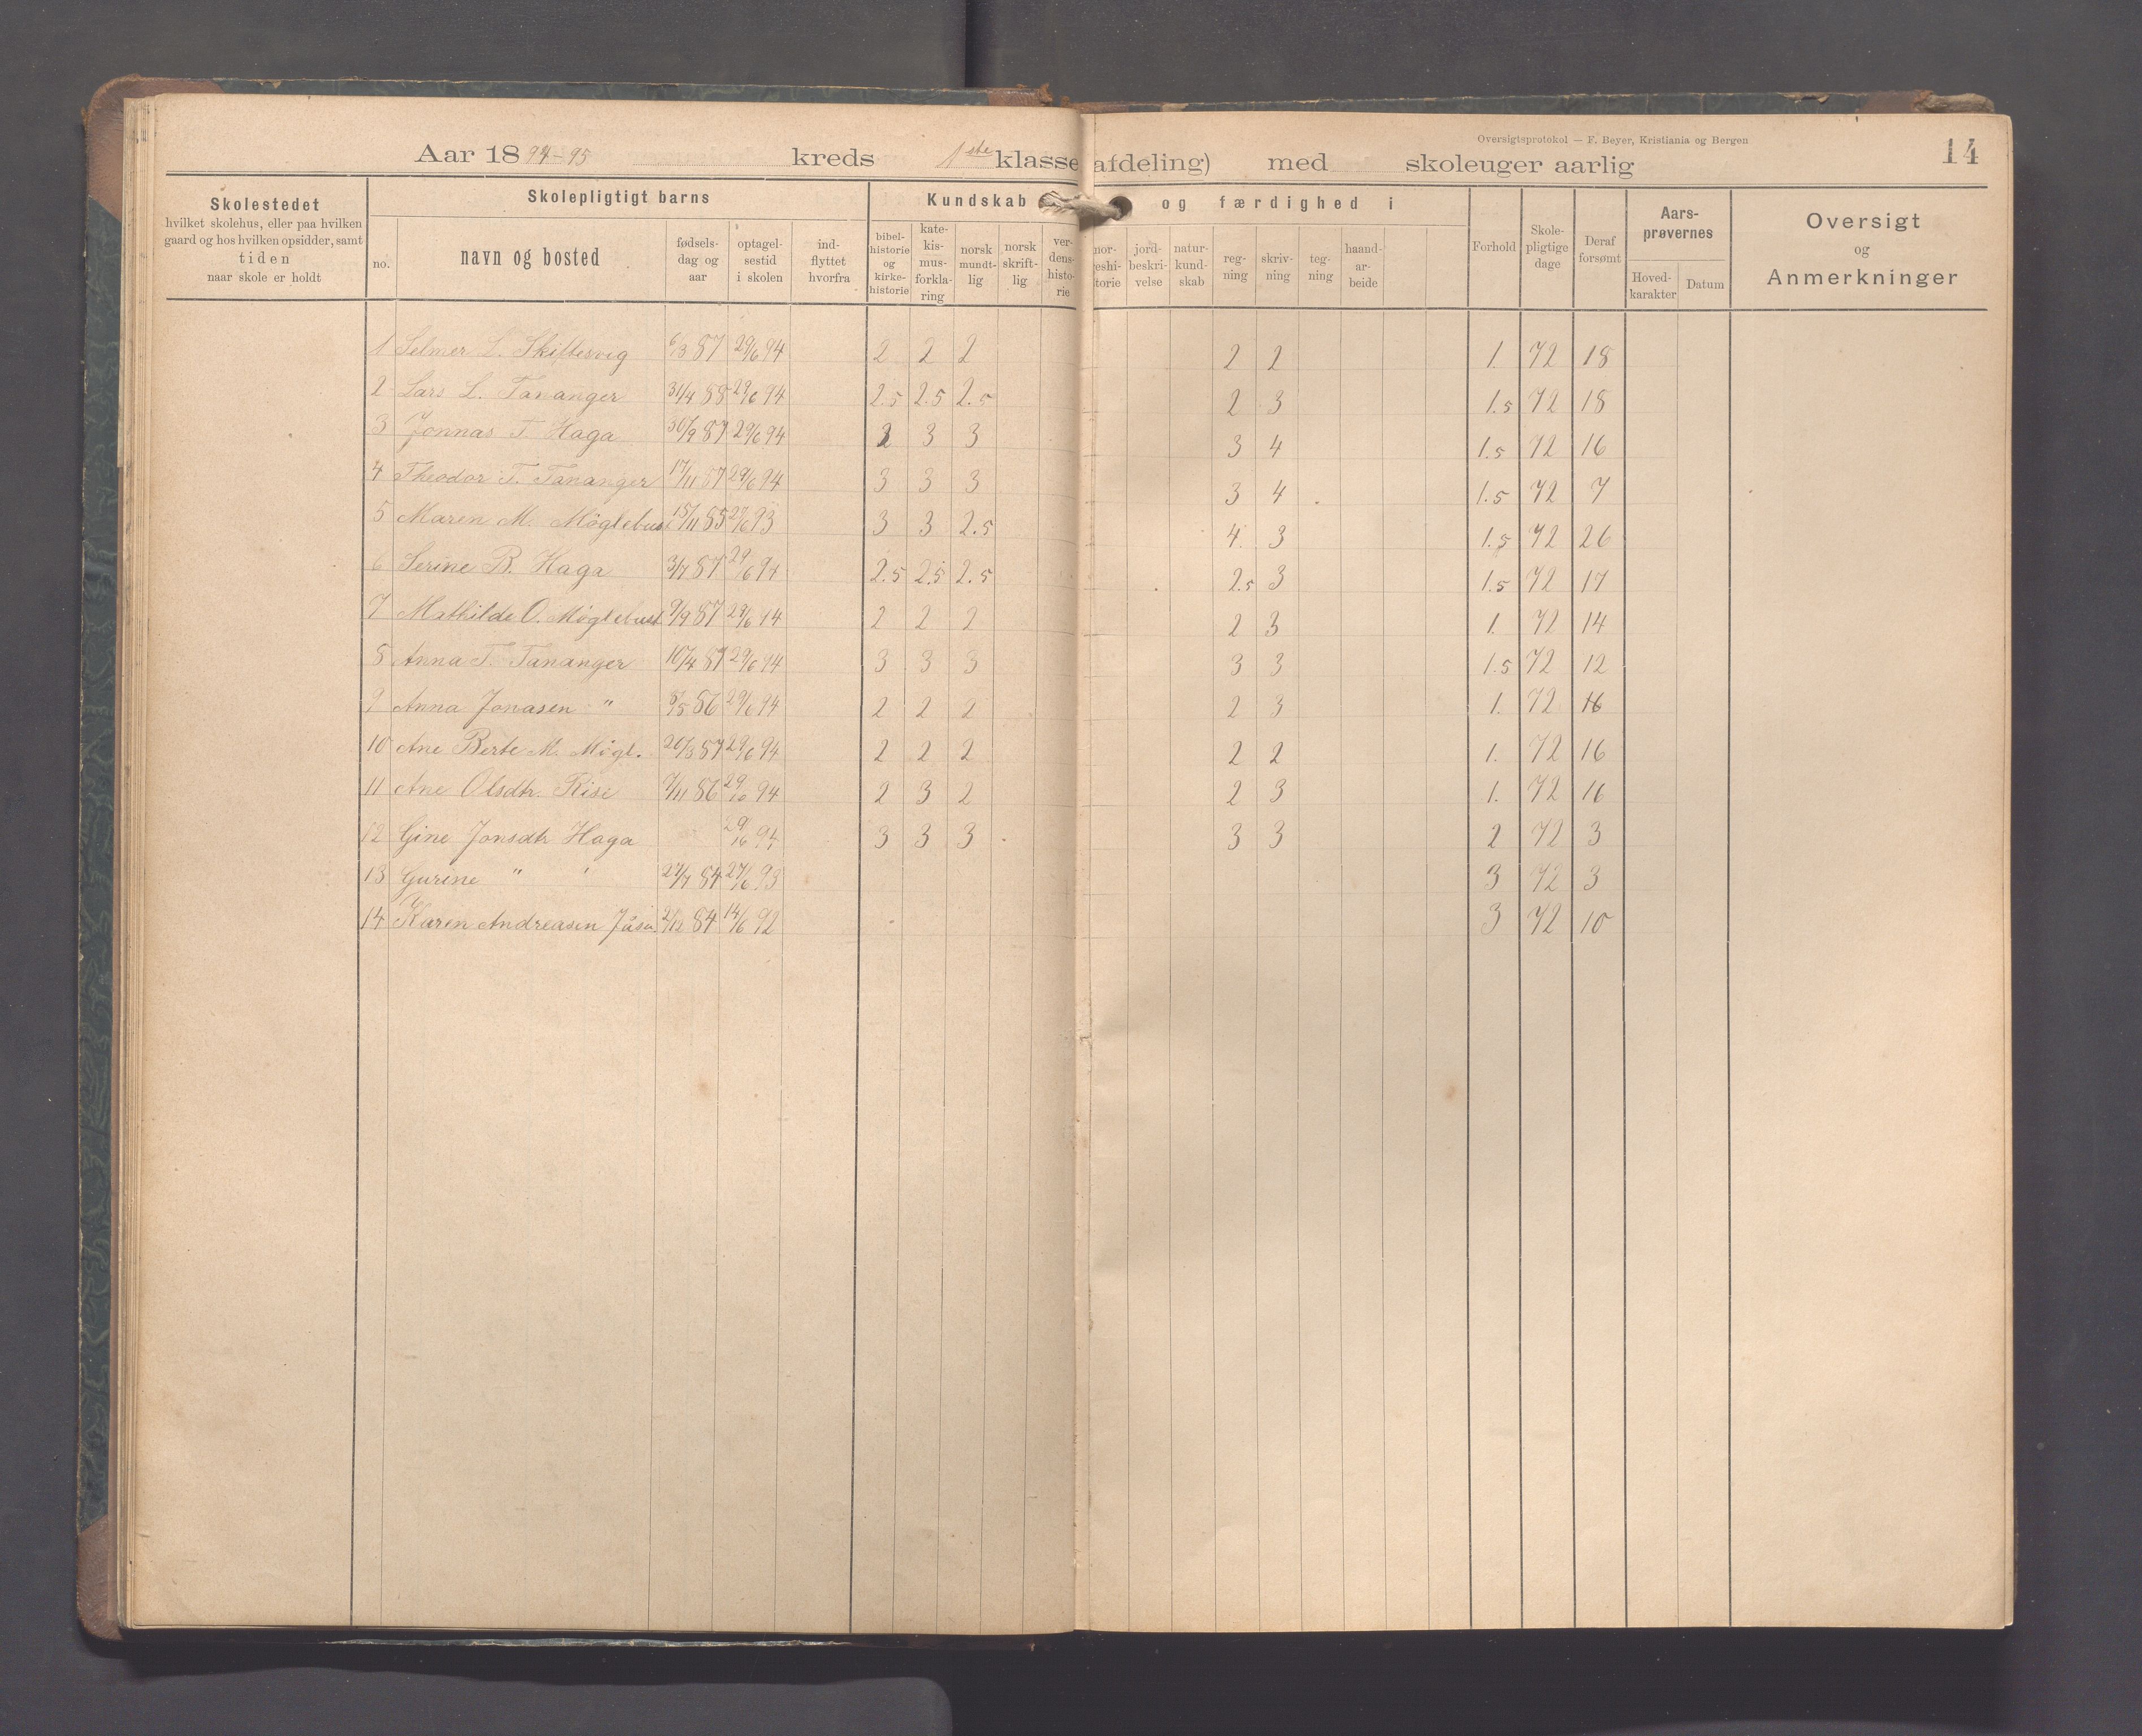 Oversigtsprotokol — F. Beyer, Kristiania og Bergen
14
Aar 1894-95 kreds 1ste klasse (afdeling) med skoleuger aarlig
Skolestedet
hvilket skolehus, eller paa hvilken
gaard og hos hvilken opsidder, samt
tiden
naar skole er holdt
Skolepligtigt barns
no.
navn og bosted
fødsels-
dag og
aar
optagel-
sestid
i skolen
ind-
flyttet
hvorfra
Kundskab og færdighed i
bibel-
historie
og
kirke-
historie
kate-
kis-
mus-
forkla-
ring
norsk
mundt-
lig
norsk
skrift-
lig
ver-
dens-
histo-
rie
nor-
geshi-
storie
jord-
beskri-
velse
natur-
kund-
skab
reg-
ning
skriv-
ning
teg-
ning
haand-
ar-
beide
Forhold
Skole-
pligtige
dage
Deraf
forsømt
Aars-
prøvernes
Hoved-
karakter
Datum
Oversigt
og
Anmerkninger
1 Selmer L. Skiftesvig 6/3 87 29/6 94 2 2 2 2 2 1. 72 18
2 Lars L. Tananger 31/4 88 29/6 94 2.5 2.5 2.5 2 3 1.5 72 18
3 Jonnas T. Haga 30/9 87 29/6 94 2 3 3 3 4 1.5 72 16
4 Theodor T. Tananger 17/11 87 29/6 94 3 3 3 3 4 1.5 72 7
5 Maren M. Møglebust 15/11 85 29/6 93 3 3 2.5 4. 3 1.5 72 26
6 Serine B. Haga 3/7 87 29/6 94 2.5 2.5 2.5 2.5 3 1.5 72 17
7 Mathilde O. Møglebust 9/9 87 29/6 94 2 2 2 2 3 1. 72 14
8 Anna T. Tananger 10/4 87 29/6 94 3 3 3 3 3 1.5 72 12
9 Anna Jonasen " 8/5 86 29/6 94 2 2 2 2 3 1. 72 16
10 Ane Berte M. Møgl. 20/3 87 29/6 94 2 2 2 2 2 1. 72 16
11 Ane Olsdtr. Risi 9/11 86 29/6 94 2 3 2 2 3 1. 72 16
12 Gine Jonsdtr Haga 29/6 94 3 3 3 3 3 2 72 3
13 Gurine " " 27/7 84 27/6 93 3 72 3
14 Karen Andreasen 2/12 84 14/6 92 3 72 10